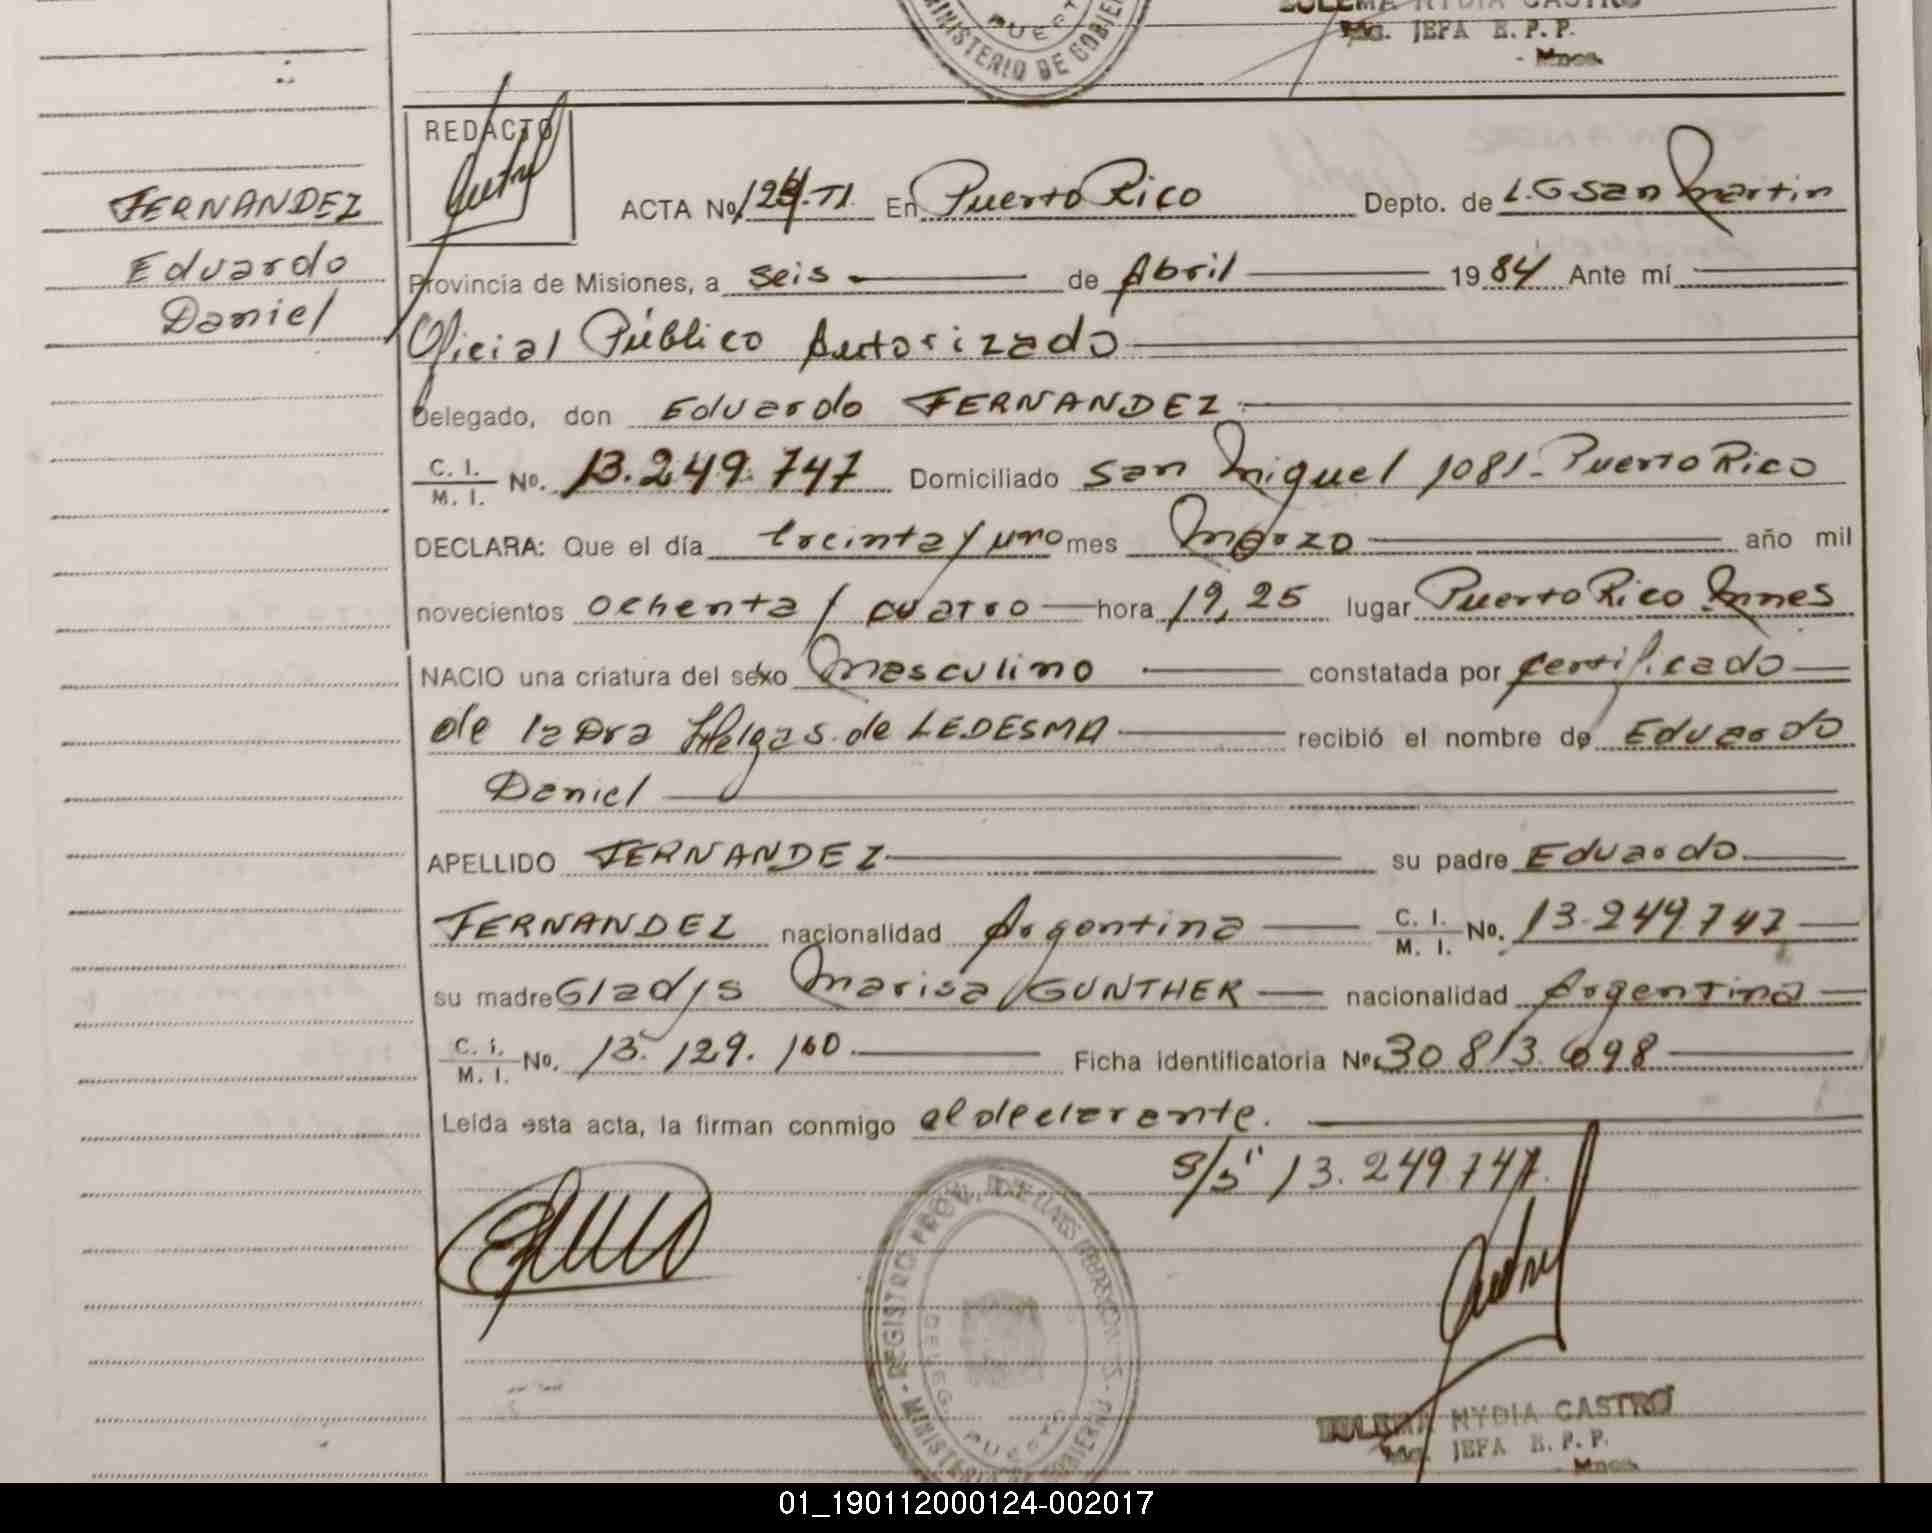 MINISTERIO DE GOBIER
PUERT
ZULEMA NYDIA CASTRO
JEFA R. P. P.
- Mnes.
REDACTO
ACTA No 124.TI. En Puerto Rico Depto. de L.G San Martin
FERNANDEZ
Eduardo
Daniel
Provincia de Misiones, a seis de Abril 19 84 Ante mí
Oficial Público Autorizado
Delegado, don Eduardo FERNANDEZ
C. I. / M. I. No. 13.249.747 Domiciliado San Miguel 1081- Puerto Rico
DECLARA: Que el día treinta y uno mes Marzo año mil
novecientos ochenta y cuatro hora 19,25 lugar Puerto Rico Mnes
NACIO una criatura del sexo Masculino constatada por certificado
de la Dra Helga S. de LEDESMA recibió el nombre de Eduardo
Daniel
APELLIDO FERNANDEZ su padre Eduardo
FERNANDEZ nacionalidad Argentina C. I. / M. I. No. 13.249.747
su madre Gladys Marisa GUNTHER nacionalidad Argentina
C. I. / M. I. No. 13.129.160 Ficha identificatoria No. 30.813.698
Leída esta acta, la firman conmigo el declarante.
S/S" 13.249.747.
REGISTRO PROV. DE LAS PERSONAS - MINISTERIO DE GOBIERNO -
DELEG. PUERTO
ZULEMA NYDIA CASTRO
JEFA R. P. P.
Mnes.
01_190112000124-002017